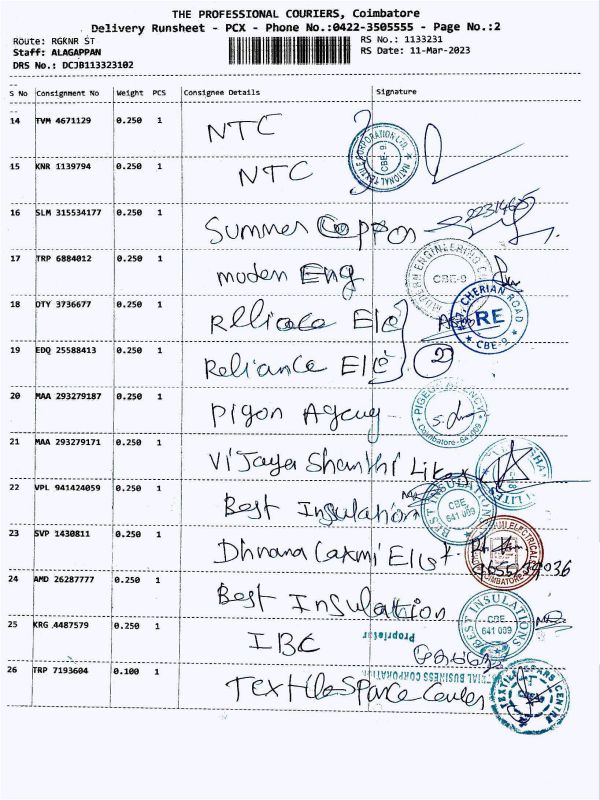 THE PROFESSIONAL COURIERS, Coimbatore
Delivery Runsheet - PCX - Phone No.:0422-3505555 - Page No.:2
Route: RGKNR ST
RS No.: 1133231
Staff: ALAGAPPAN
RS Date: 11-Mar-2023
DRS No.: DCJB113323102
S No Consignment No Weight PCS Consignee Details Signature
14 TVM 4671129 0.250 1 NTC
NATIONAL TEXTILE CORPORATION LTD. CBE-9.
15 KNR 1139794 0.250 1 NTC
16 SLM 315534177 0.250 1 Summer Coppos
17 TRP 6884012 0.250 1 moden Eng
MODERN ENGINEERING CBE-9
18 OTY 3736677 0.250 1 Relliace Ele
CHERIAN ROAD RE CBE-9
19 EDQ 25588413 0.250 1 Reliance Ele 2
20 MAA 293279187 0.250 1 pigon Agency
PIGEON AGENCY Coimbatore
21 MAA 293279171 0.250 1 Vijaya Shanthi
22 VPL 941424059 0.250 1 Best Insulation
BEST INSULATIONS CBE 641 009
23 SVP 1430811 0.250 1 Dhnana Laxmi
ELECTRICAL COIMBATORE
24 AMD 26287777 0.250 1 Best Insulation
BEST INSULATIONS CBE 641 009
25 KRG 4487579 0.250 1 IBC
Proprietor
BUSINESS CORPORATION
26 TRP 7193604 0.100 1 Textile Space Center
TEXTILE SPARES CENTRE